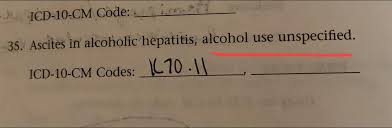 ICD-10-CM Code:
35. Ascites in alcoholic hepatitis, alcohol use unspecified.
ICD-10-CM Codes: K70.11 ,